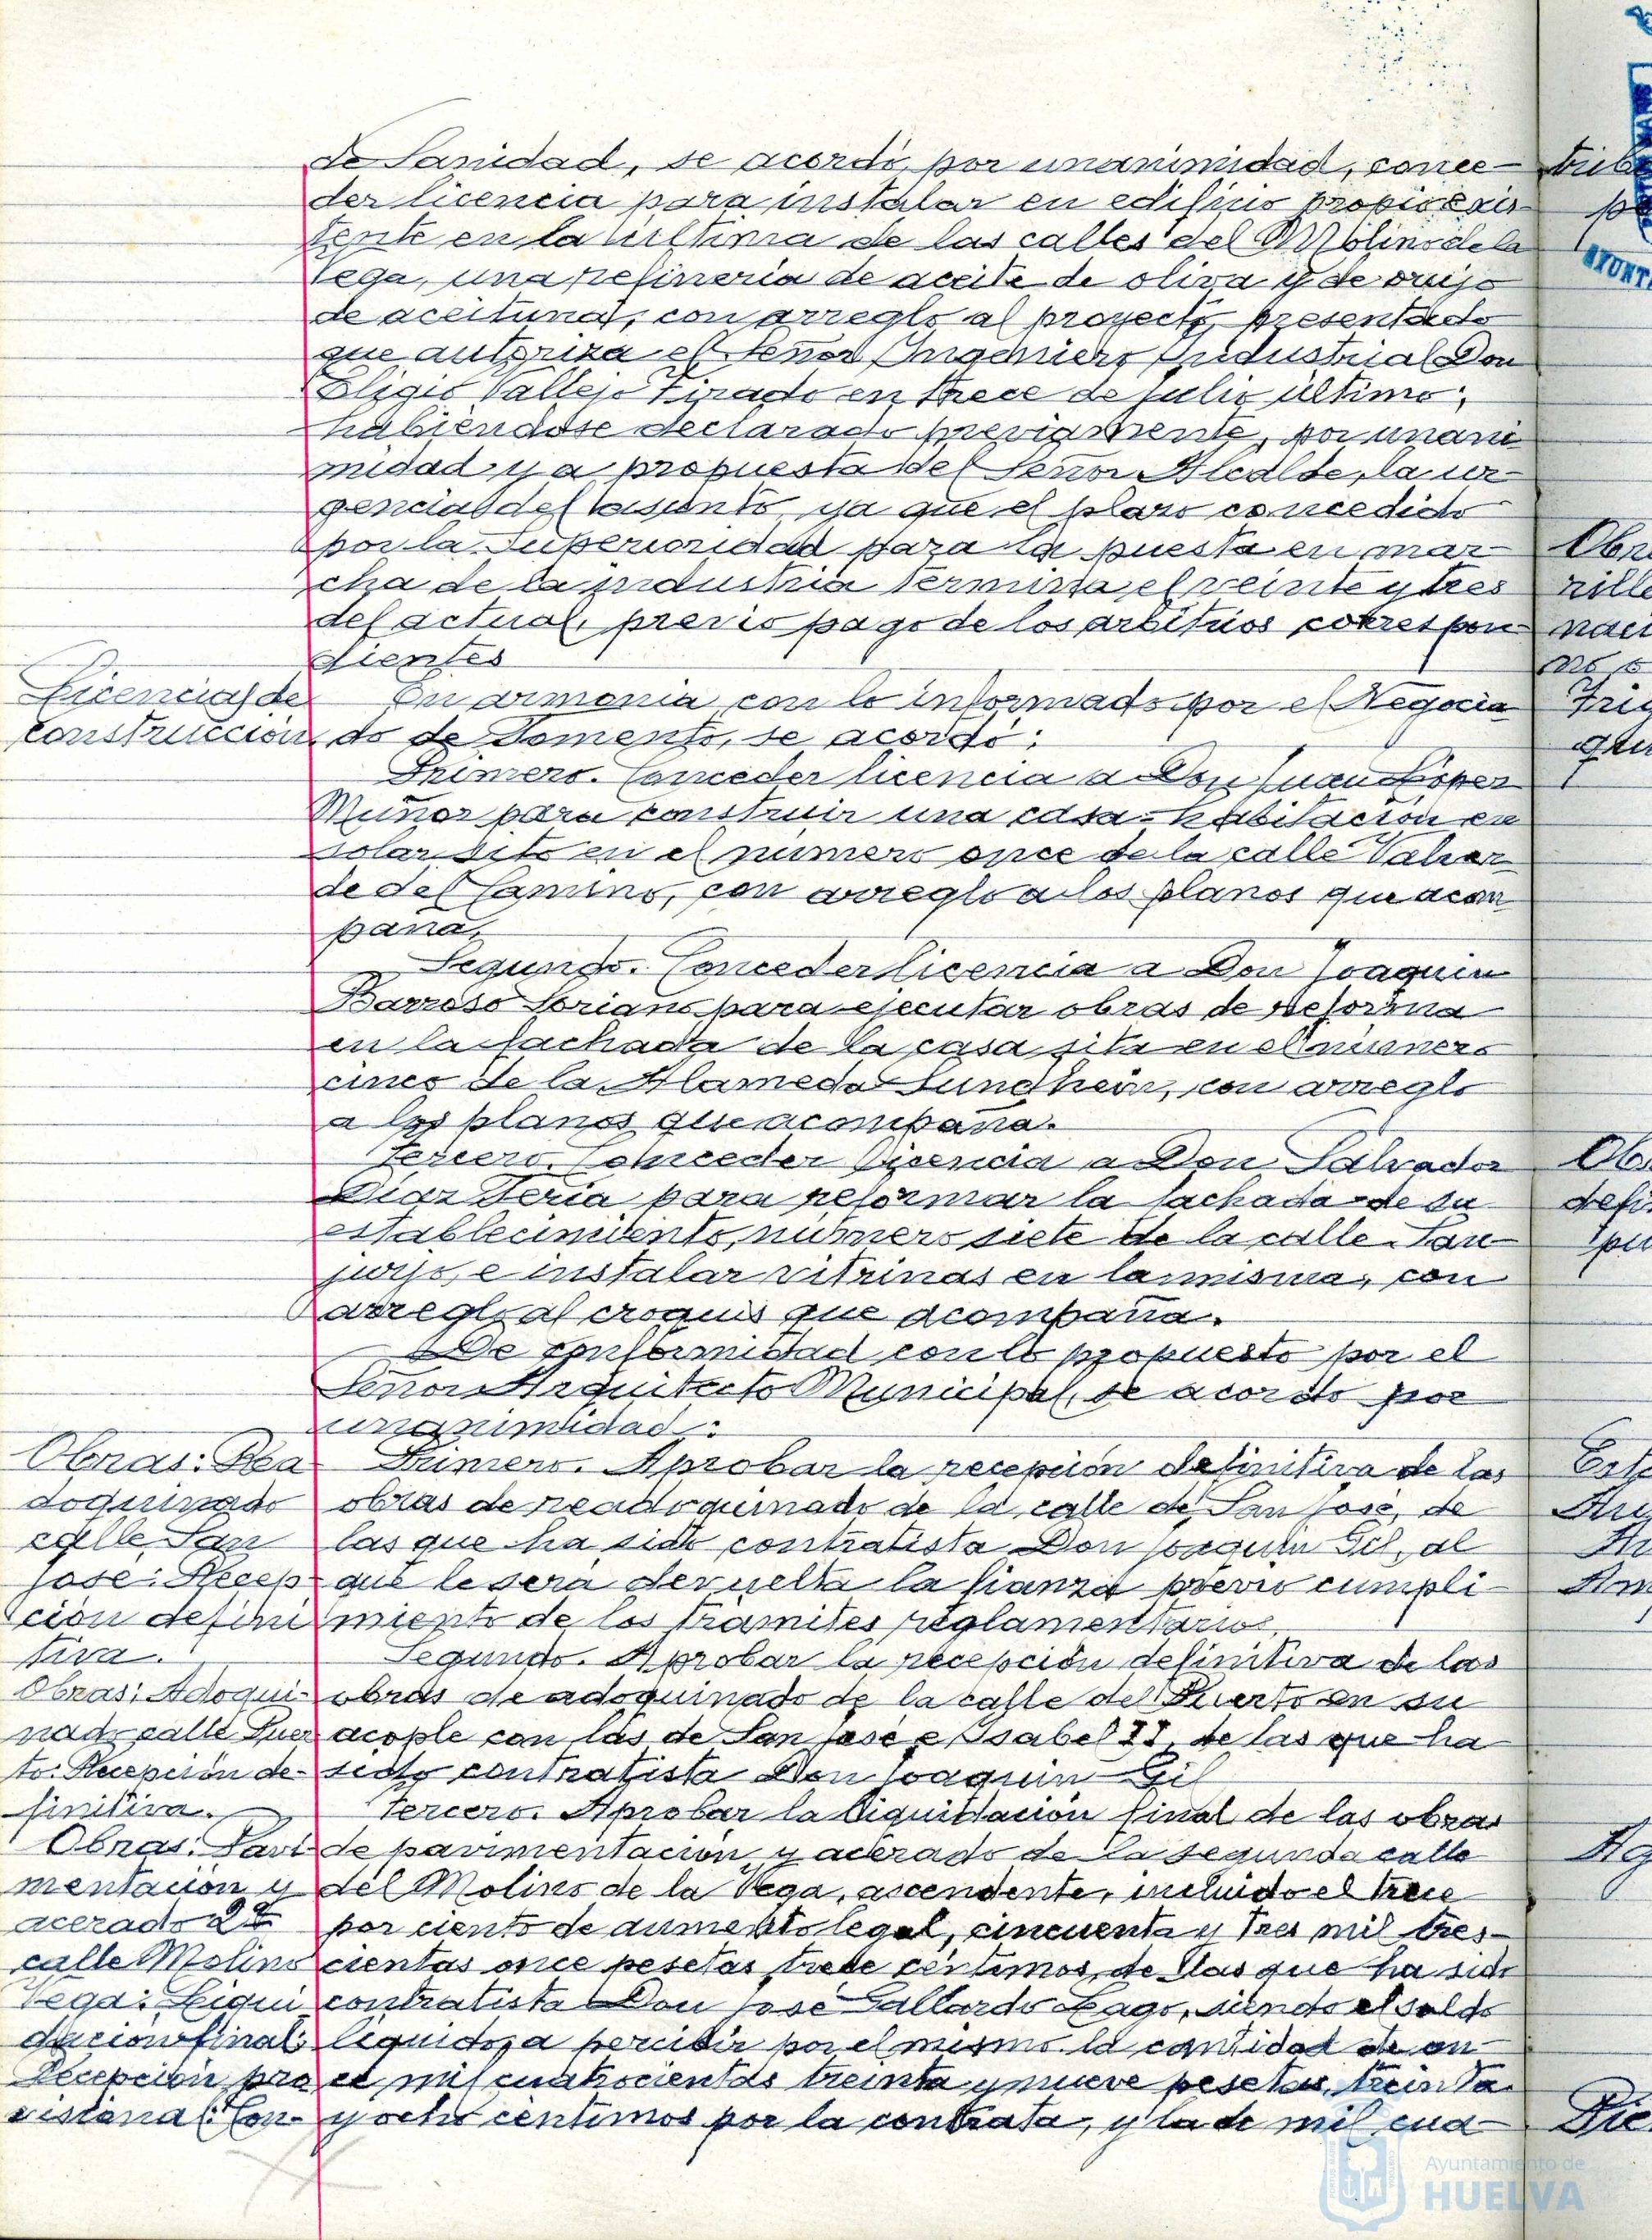 de Sanidad, se acordó, por unanimidad, conce-
der licencia para instalar en edificio propio exis
tente en la última de las calles del Molino de la
Vega, una refinería de aceite de oliva y de orujo
de aceituna, con arreglo al proyecto presentado
que autoriza el Señor Ingeniero Industrial Don
Eligio Vallejo Tirado en trece de julio último;
habiéndose declarado previamente, por unani
midad y a propuesta del Señor Alcalde, la ur-
gencia del asunto, ya que el plazo concedido
por la Superioridad para la puesta en mar-
cha de la industria termina el veinte y tres
del actual, previo pago de los arbitrios correspon-
dientes
Licencias de
construcción
En armonía con lo informado por el Negocia
do de Fomento, se acordó:
Primero. Conceder licencia a Don Juan López
Muñoz para construir una casa-habitación en
solar sito en el número once de la calle Valver
de del Camino, con arreglo a los planos que acom
paña,
Segundo. Conceder licencia a Don Joaquín
Barroso Soriano para ejecutar obras de reforma
en la fachada de la casa sita en el número
cinco de la Alameda Sundheim, con arreglo
a los planos que acompaña.
Tercero. Conceder licencia a Don Salvador
Díaz Feria para reformar la fachada de su
establecimiento, número siete de la calle San
jurjo, e instalar vitrinas en la misma, con
arreglo al croquis que acompaña.
De conformidad con lo propuesto por el
Señor Arquitecto Municipal, se acordó por
unanimidad:
Obras: Rea
doquinado
calle San
José: Recep
ción defini
tiva.
Primero. Aprobar la recepción definitiva de las
obras de readoquinado de la calle de San José, de
las que ha sido contratista Don Joaquín Gil, al
que le será devuelta la fianza previo cumpli-
miento de los trámites reglamentarios.
Obras: Adoqui-
nado calle Puer
to: Recepción de-
finitiva.
Segundo. Aprobar la recepción definitiva de las
obras de adoquinado de la calle del Puerto en su
acople con las de San José e Isabel II, de las que ha
sido contratista Don Joaquín Gil
Obras: Pavi
mentación y
acerado 2ª
calle Molino
Vega: Liqui
dación final:
Recepción pro
visional: Con-
Tercero. Aprobar la liquidación final de las obras
de pavimentación y acerado de la segunda calle
del Molino de la Vega, ascendente, incluido el trece
por ciento de aumento legal, cincuenta y tres mil tres-
cientas once pesetas trece céntimos, de las que ha sido
contratista Don José Gallardo Lago, siendo el saldo
líquido, a percibir por el mismo la cantidad de on-
ce mil cuatrocientas treinta y nueve pesetas, treinta
y ocho céntimos por la contrata, y la de mil cua-
Ayuntamiento de
HUELVA